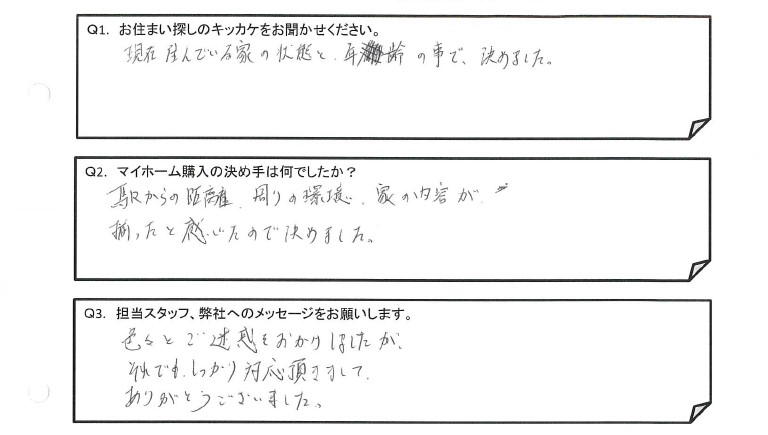 Q1. お住まい探しのキッカケをお聞かせください。
現在住んでいる家の状態と、年齢の事で、決めました。
Q2. マイホーム購入の決め手は何でしたか？
駅からの距離、周りの環境、家の内容が、
揃ったと感じたので決めました。
Q3. 担当スタッフ、弊社へのメッセージをお願いします。
色々とご迷惑をおかけしましたが、
それでも、しっかり対応頂きまして、
ありがとうございました。